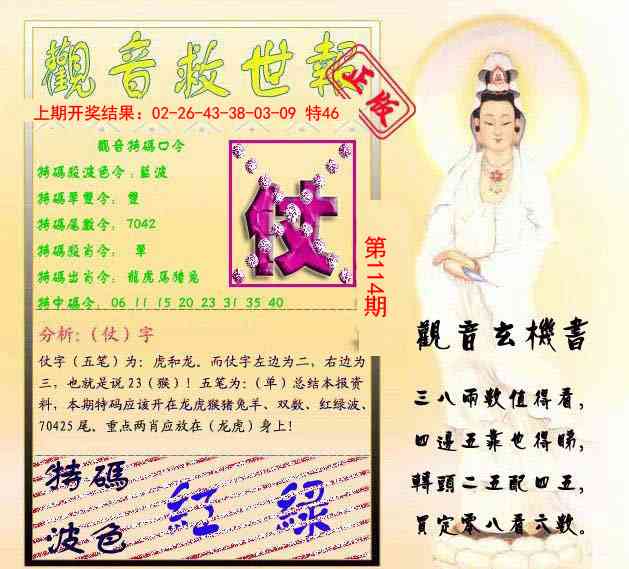 觀音救世報
正版
上期开奖结果：02-26-43-38-03-09 特46
觀音特碼口令
特碼殺波色令：藍波
特碼單雙令： 雙
特碼尾數令： 7042
特碼殺肖令： 單
特碼出肖令： 龍虎馬豬兔
特中碼令：06 11 15 20 23 31 35 40
仗
第114期
分析：（仗）字
仗字（五笔）为：虎和龙。而仗字左边为二，右边为
三，也就是说 23（猴）！五笔为：（单）总结本报资
料，本期特码应该开在龙虎猴猪兔羊、双数、红绿波、
70425 尾、重点两肖应放在（龙虎）身上！
特碼
波色
红 綠
觀音玄機書
三八兩數值得看，
四邊五靠也得睇，
轉頭二五配四五，
買定零八看六數。